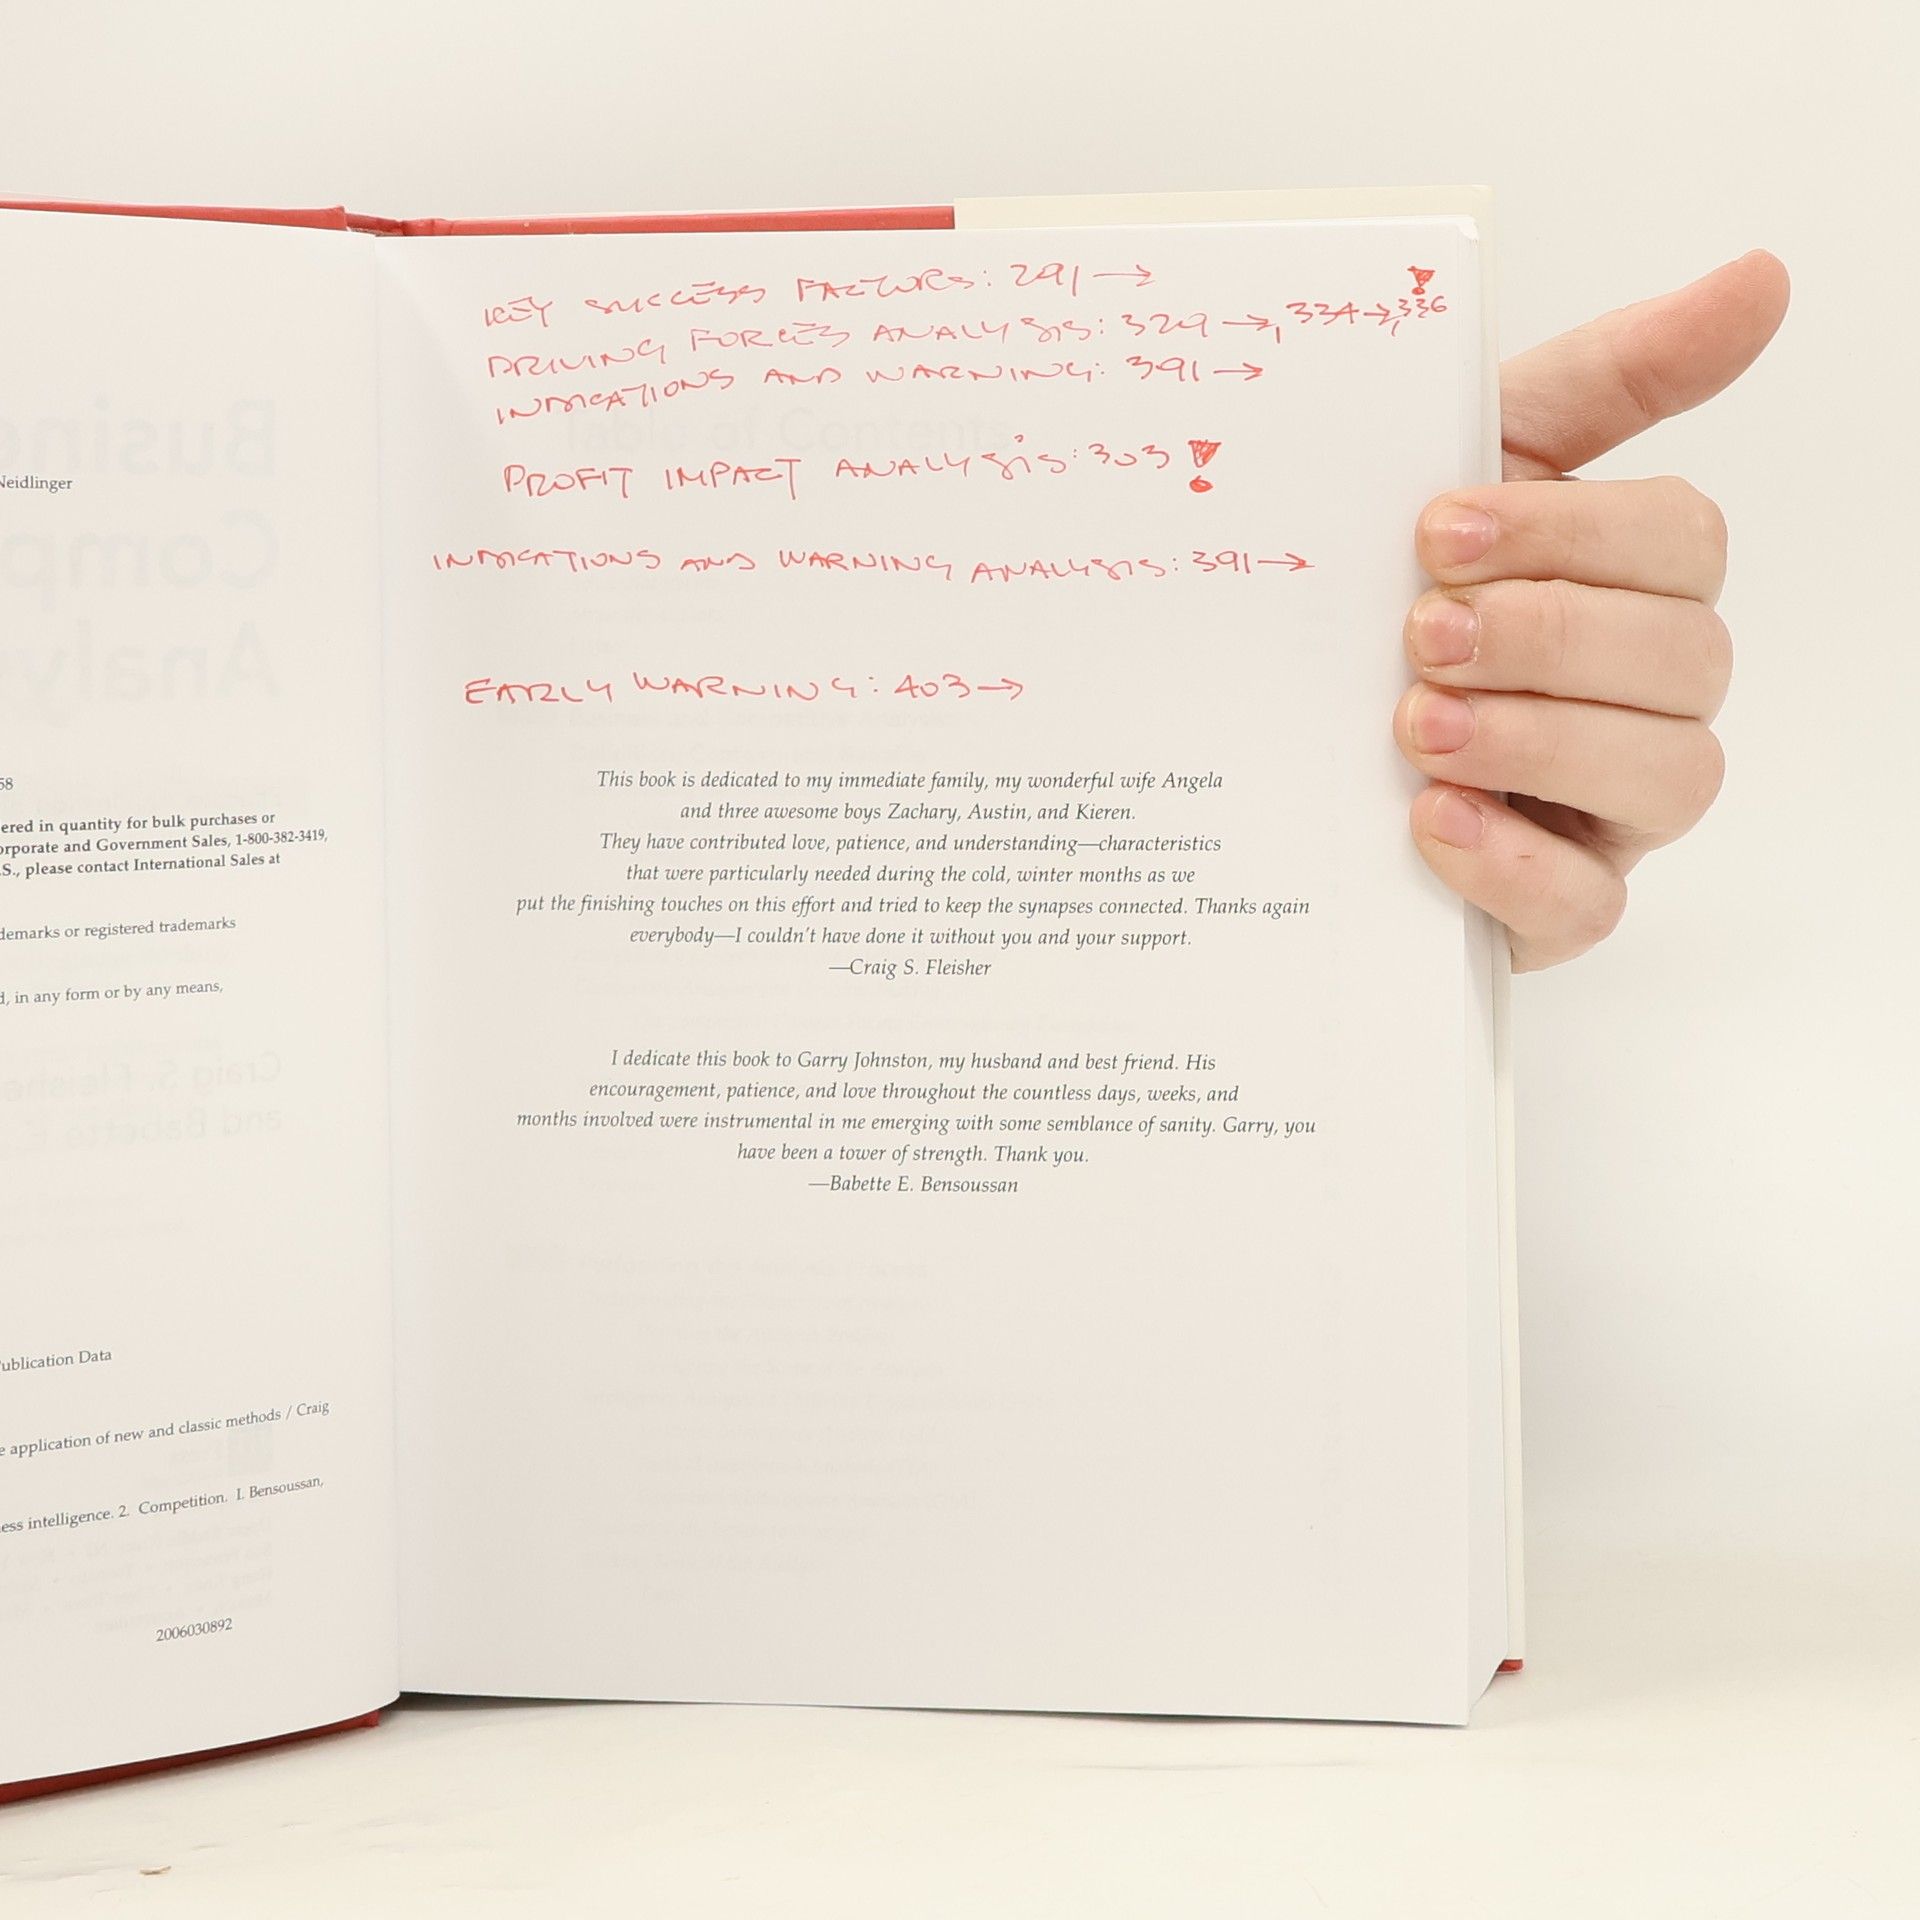 Neidlinger
58
ered in quantity for bulk purchases or
orporate and Government Sales, 1-800-382-3419,
.S., please contact International Sales at
demarks or registered trademarks
d, in any form or by any means,
Publication Data
e application of new and classic methods / Craig
ess intelligence. 2. Competition. I. Bensoussan,
2006030892
KEY SUCCESS FACTORS: 291 →
DRIVING FORCES ANALYSIS: 329 →, 334 →, 336 !
INDICATIONS AND WARNING: 391 →
PROFIT IMPACT ANALYSIS: 303 !
INDICATIONS AND WARNING ANALYSIS: 391 →
EARLY WARNING: 403 →
This book is dedicated to my immediate family, my wonderful wife Angela
and three awesome boys Zachary, Austin, and Kieren.
They have contributed love, patience, and understanding—characteristics
that were particularly needed during the cold, winter months as we
put the finishing touches on this effort and tried to keep the synapses connected. Thanks again
everybody—I couldn't have done it without you and your support.
—Craig S. Fleisher
I dedicate this book to Garry Johnston, my husband and best friend. His
encouragement, patience, and love throughout the countless days, weeks, and
months involved were instrumental in me emerging with some semblance of sanity. Garry, you
have been a tower of strength. Thank you.
—Babette E. Bensoussan